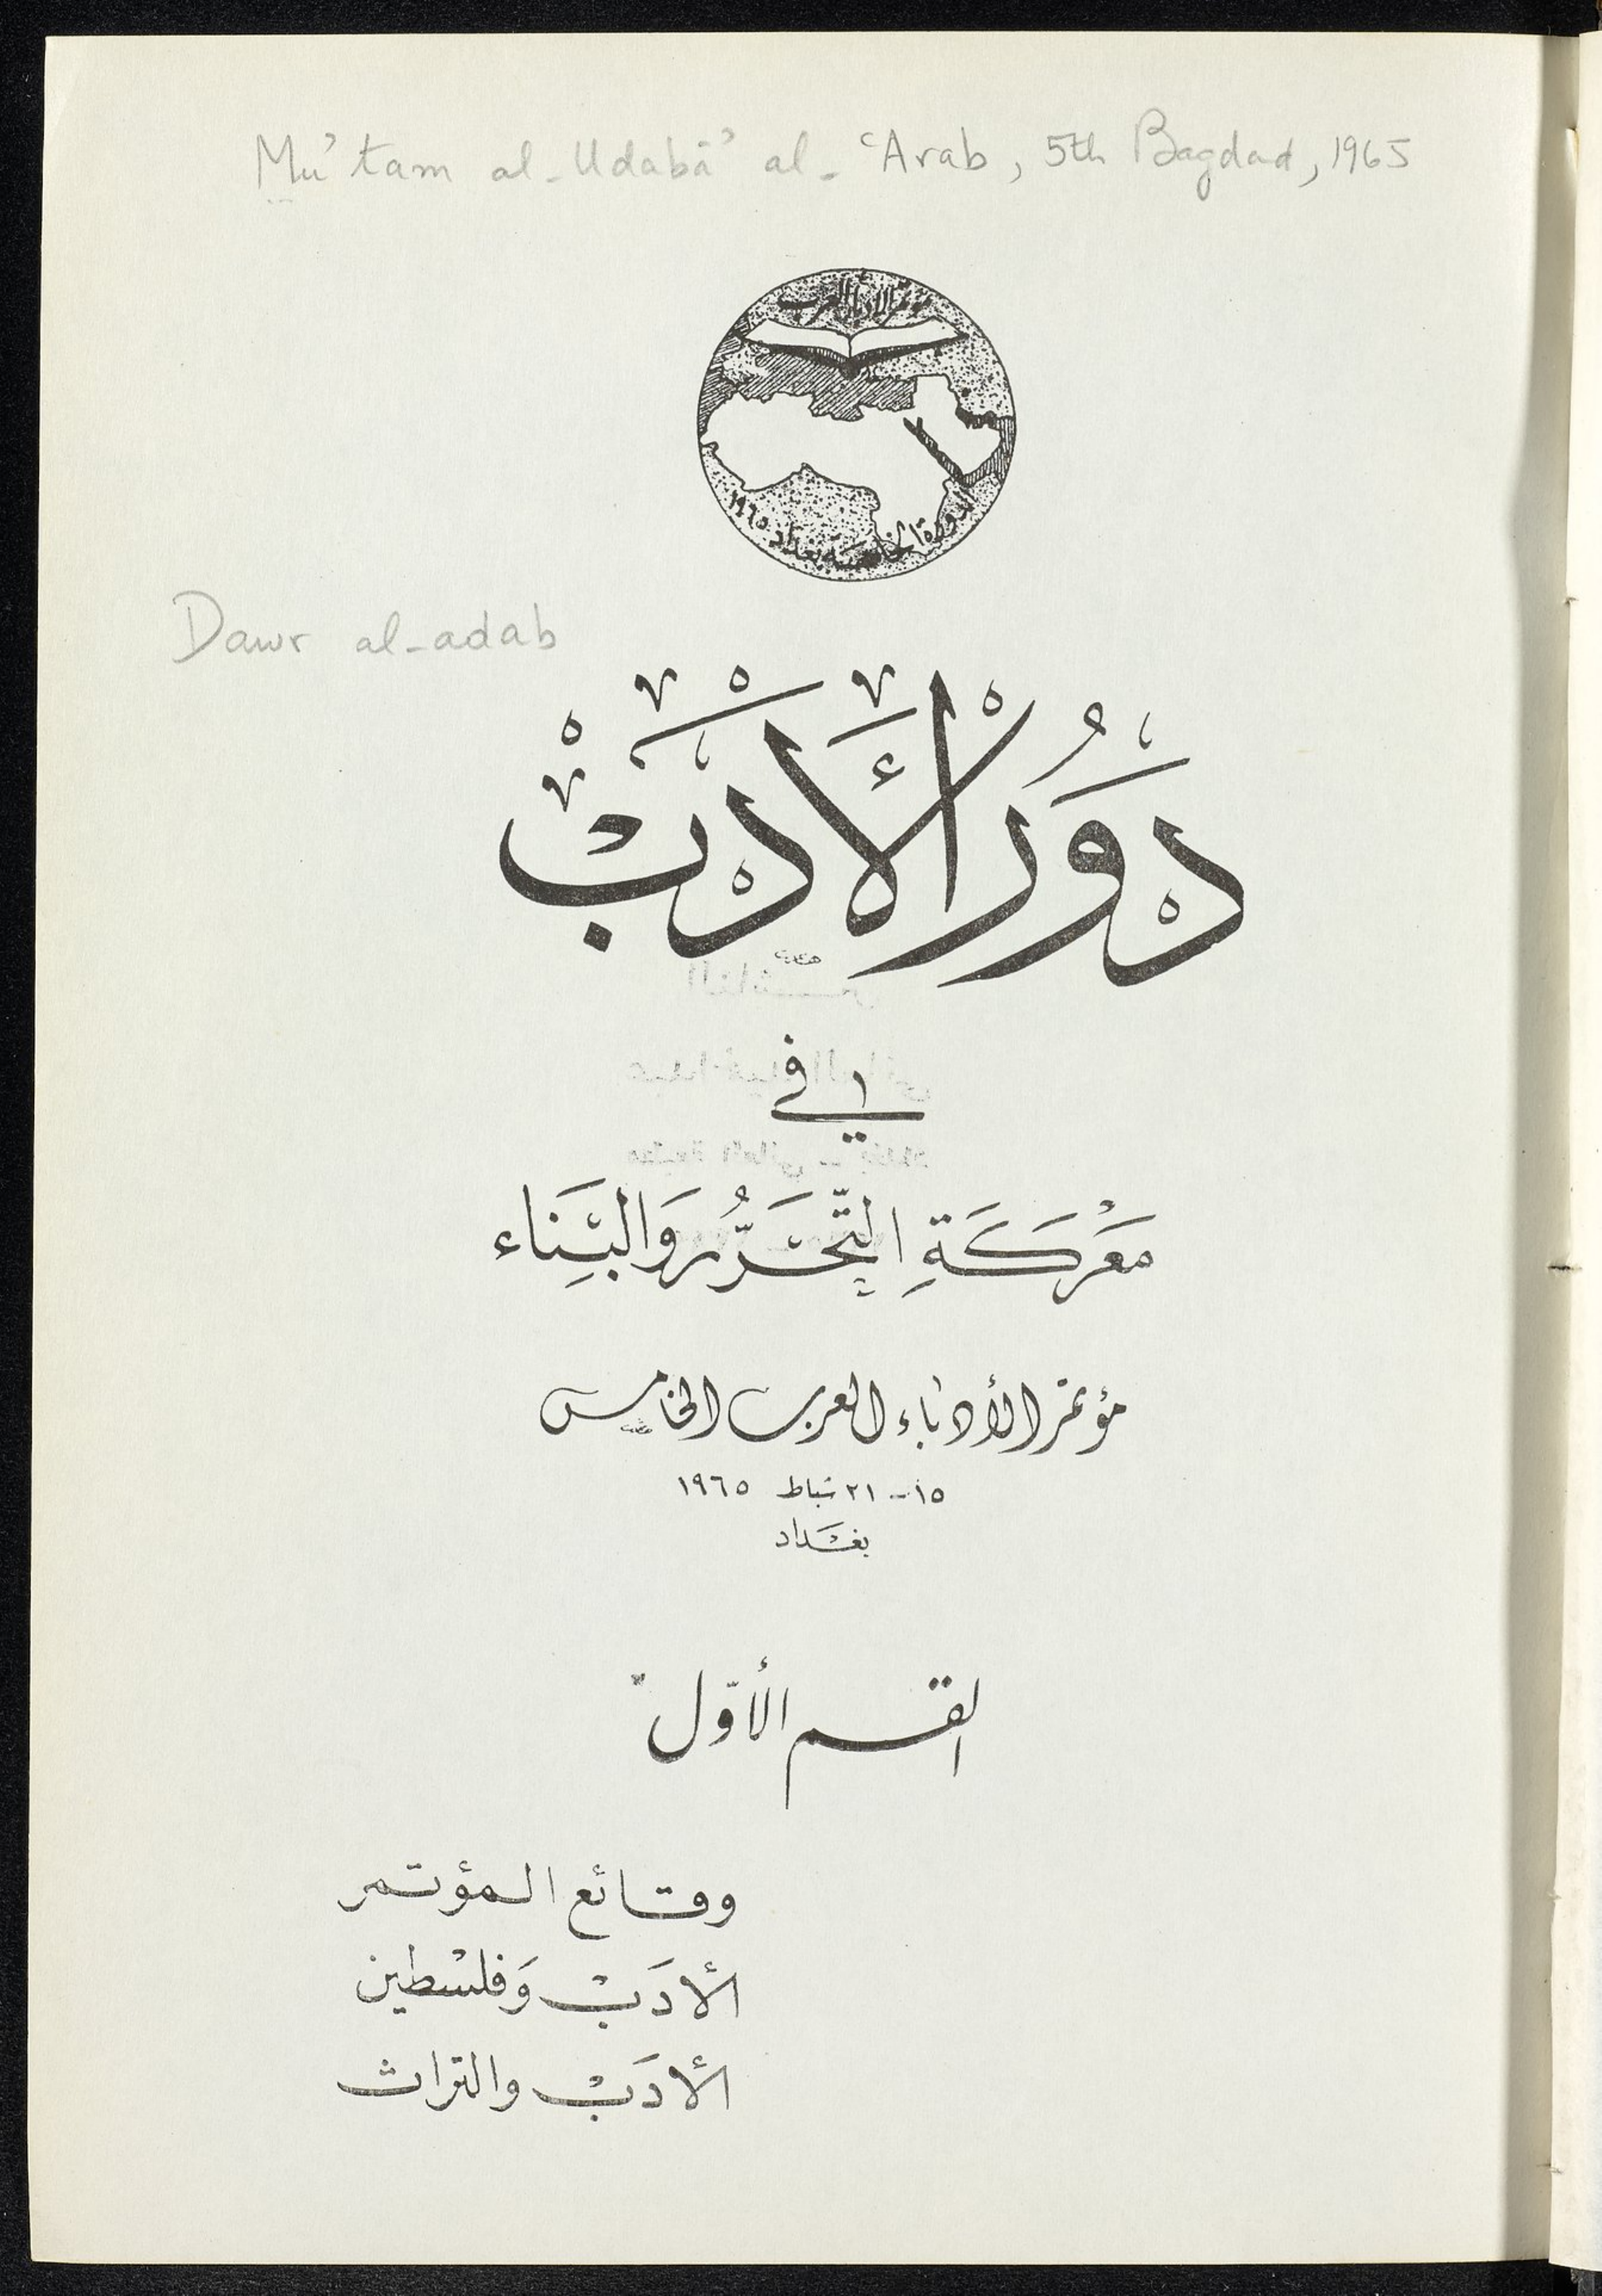 Mu'tam al-Udabā' al-'Arab, 5th Bagdad, 1965
مؤتمر الأدباء العرب
الدورة الخامسة بغداد ١٩٦٥
Dawr al-adab
دَوْرُ الْأَدَبْ
في
مَعْرَكَةِ التَّحَرُّر وَالبِنَاء
مؤتمر الأدباء العرب الخامس
١٥ - ٢١ شباط ١٩٦٥
بغداد
القسم الأوّل
وقائع المؤتمر
الأدَبْ وَفلسْطين
الأدَبْ والتراث